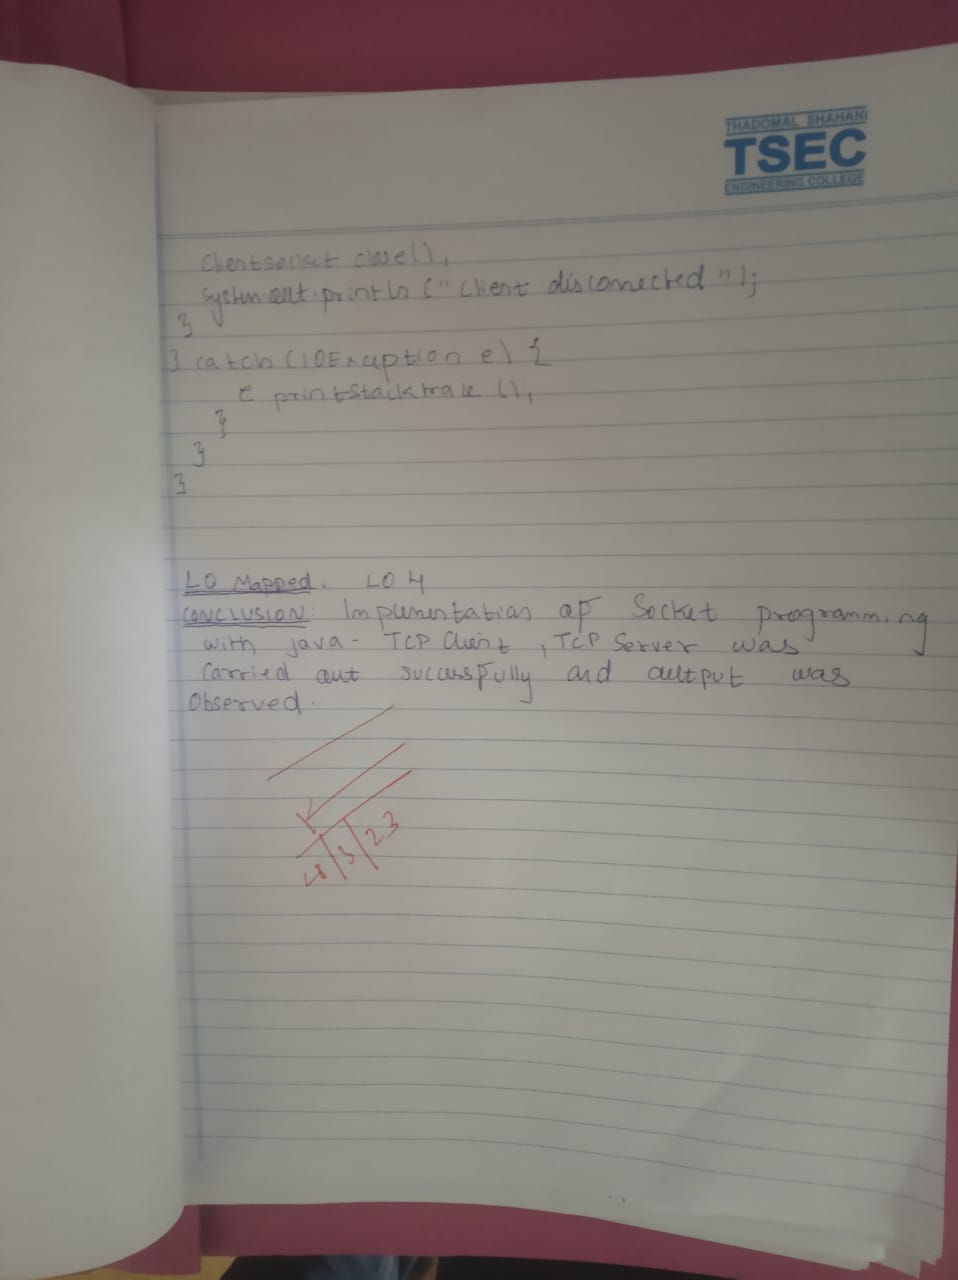 THADOMAL SHAHANI
TSEC
ENGINEERING COLLEGE
Clientsocket close();
System.out.println ("Client disconnected");
}
} catch (IOException e) {
e printStacktrace ();
}
}
}
LO Mapped. LO 4
CONCLUSION: Implementation of Socket programming
with java - TCP Client, TCP Server was
Carried out successfully and output was
Observed.
/3/23